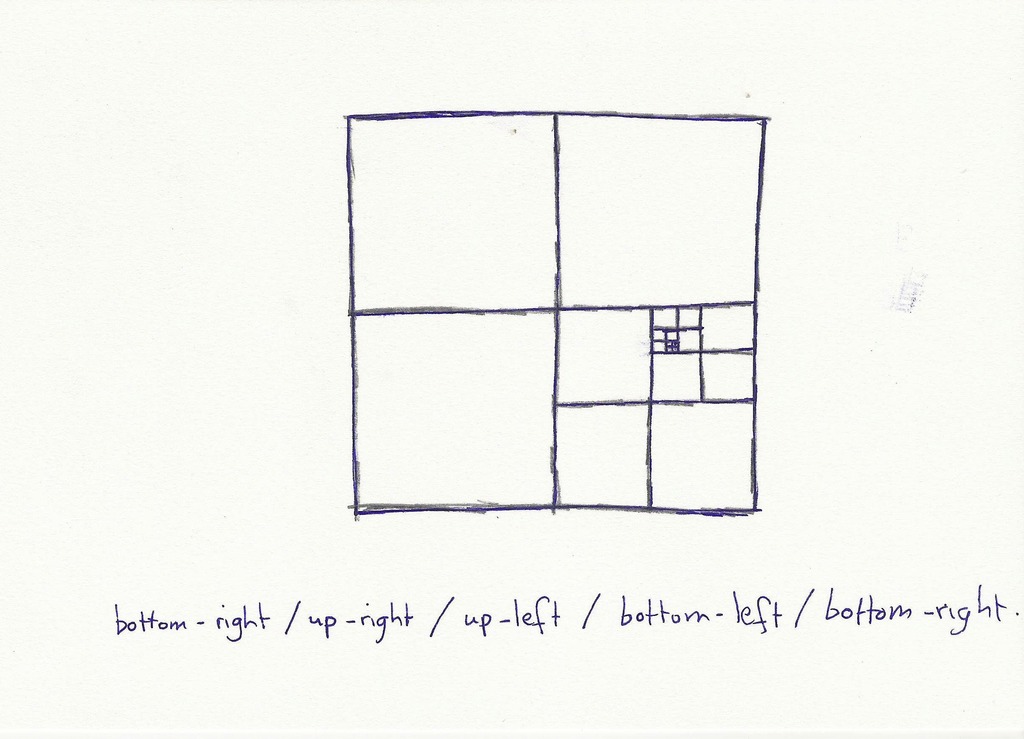 bottom-right / up-right / up-left / bottom-left / bottom-right.